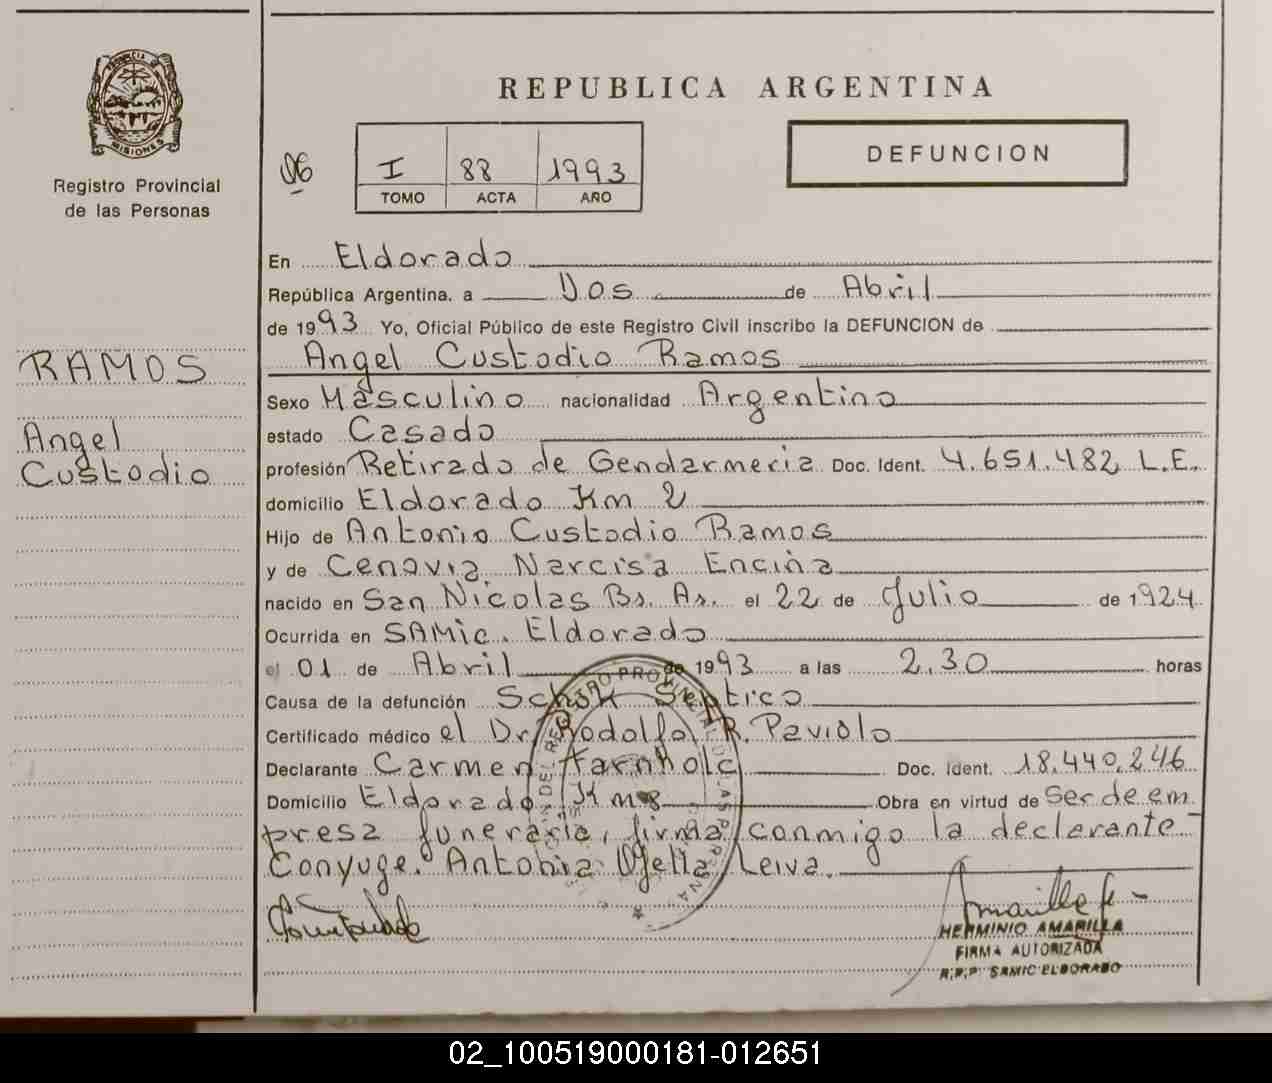 PROVINCIA DE
MISIONES
Registro Provincial
de las Personas
RAMOS
Angel
Custodio
REPUBLICA ARGENTINA
I 88 1993
TOMO ACTA AÑO
DEFUNCION
En Eldorado
República Argentina, a Dos de Abril
de 1993 Yo, Oficial Público de este Registro Civil inscribo la DEFUNCION de
Angel Custodio Ramos
Sexo Masculino nacionalidad Argentina
estado Casado
profesión Retirado de Gendarmeria Doc. Ident. 4.651.482 L.E.
domicilio Eldorado Km 2
Hijo de Antonio Custodio Ramos
y de Cenovia Narcisa Enciña
nacido en San Nicolas Bs. As. el 22 de Julio de 1924
Ocurrida en SAMic. Eldorado
el 01 de Abril de 1993 a las 2.30 horas
Causa de la defunción Schok Septico
Certificado médico el Dr. Rodolfo R. Paviolo
Declarante Carmen Farnholc Doc. Ident. 18.440.246
Domicilio Eldorado Km 8 Obra en virtud de Ser de em
presa funeraria, firma conmigo la declarante-
Conyuge. Antonia Ojeda Leiva.
HERMINIO AMARILLA
FIRMA AUTORIZADA
R.P.P. SAMIC ELDORADO
02_100519000181-012651